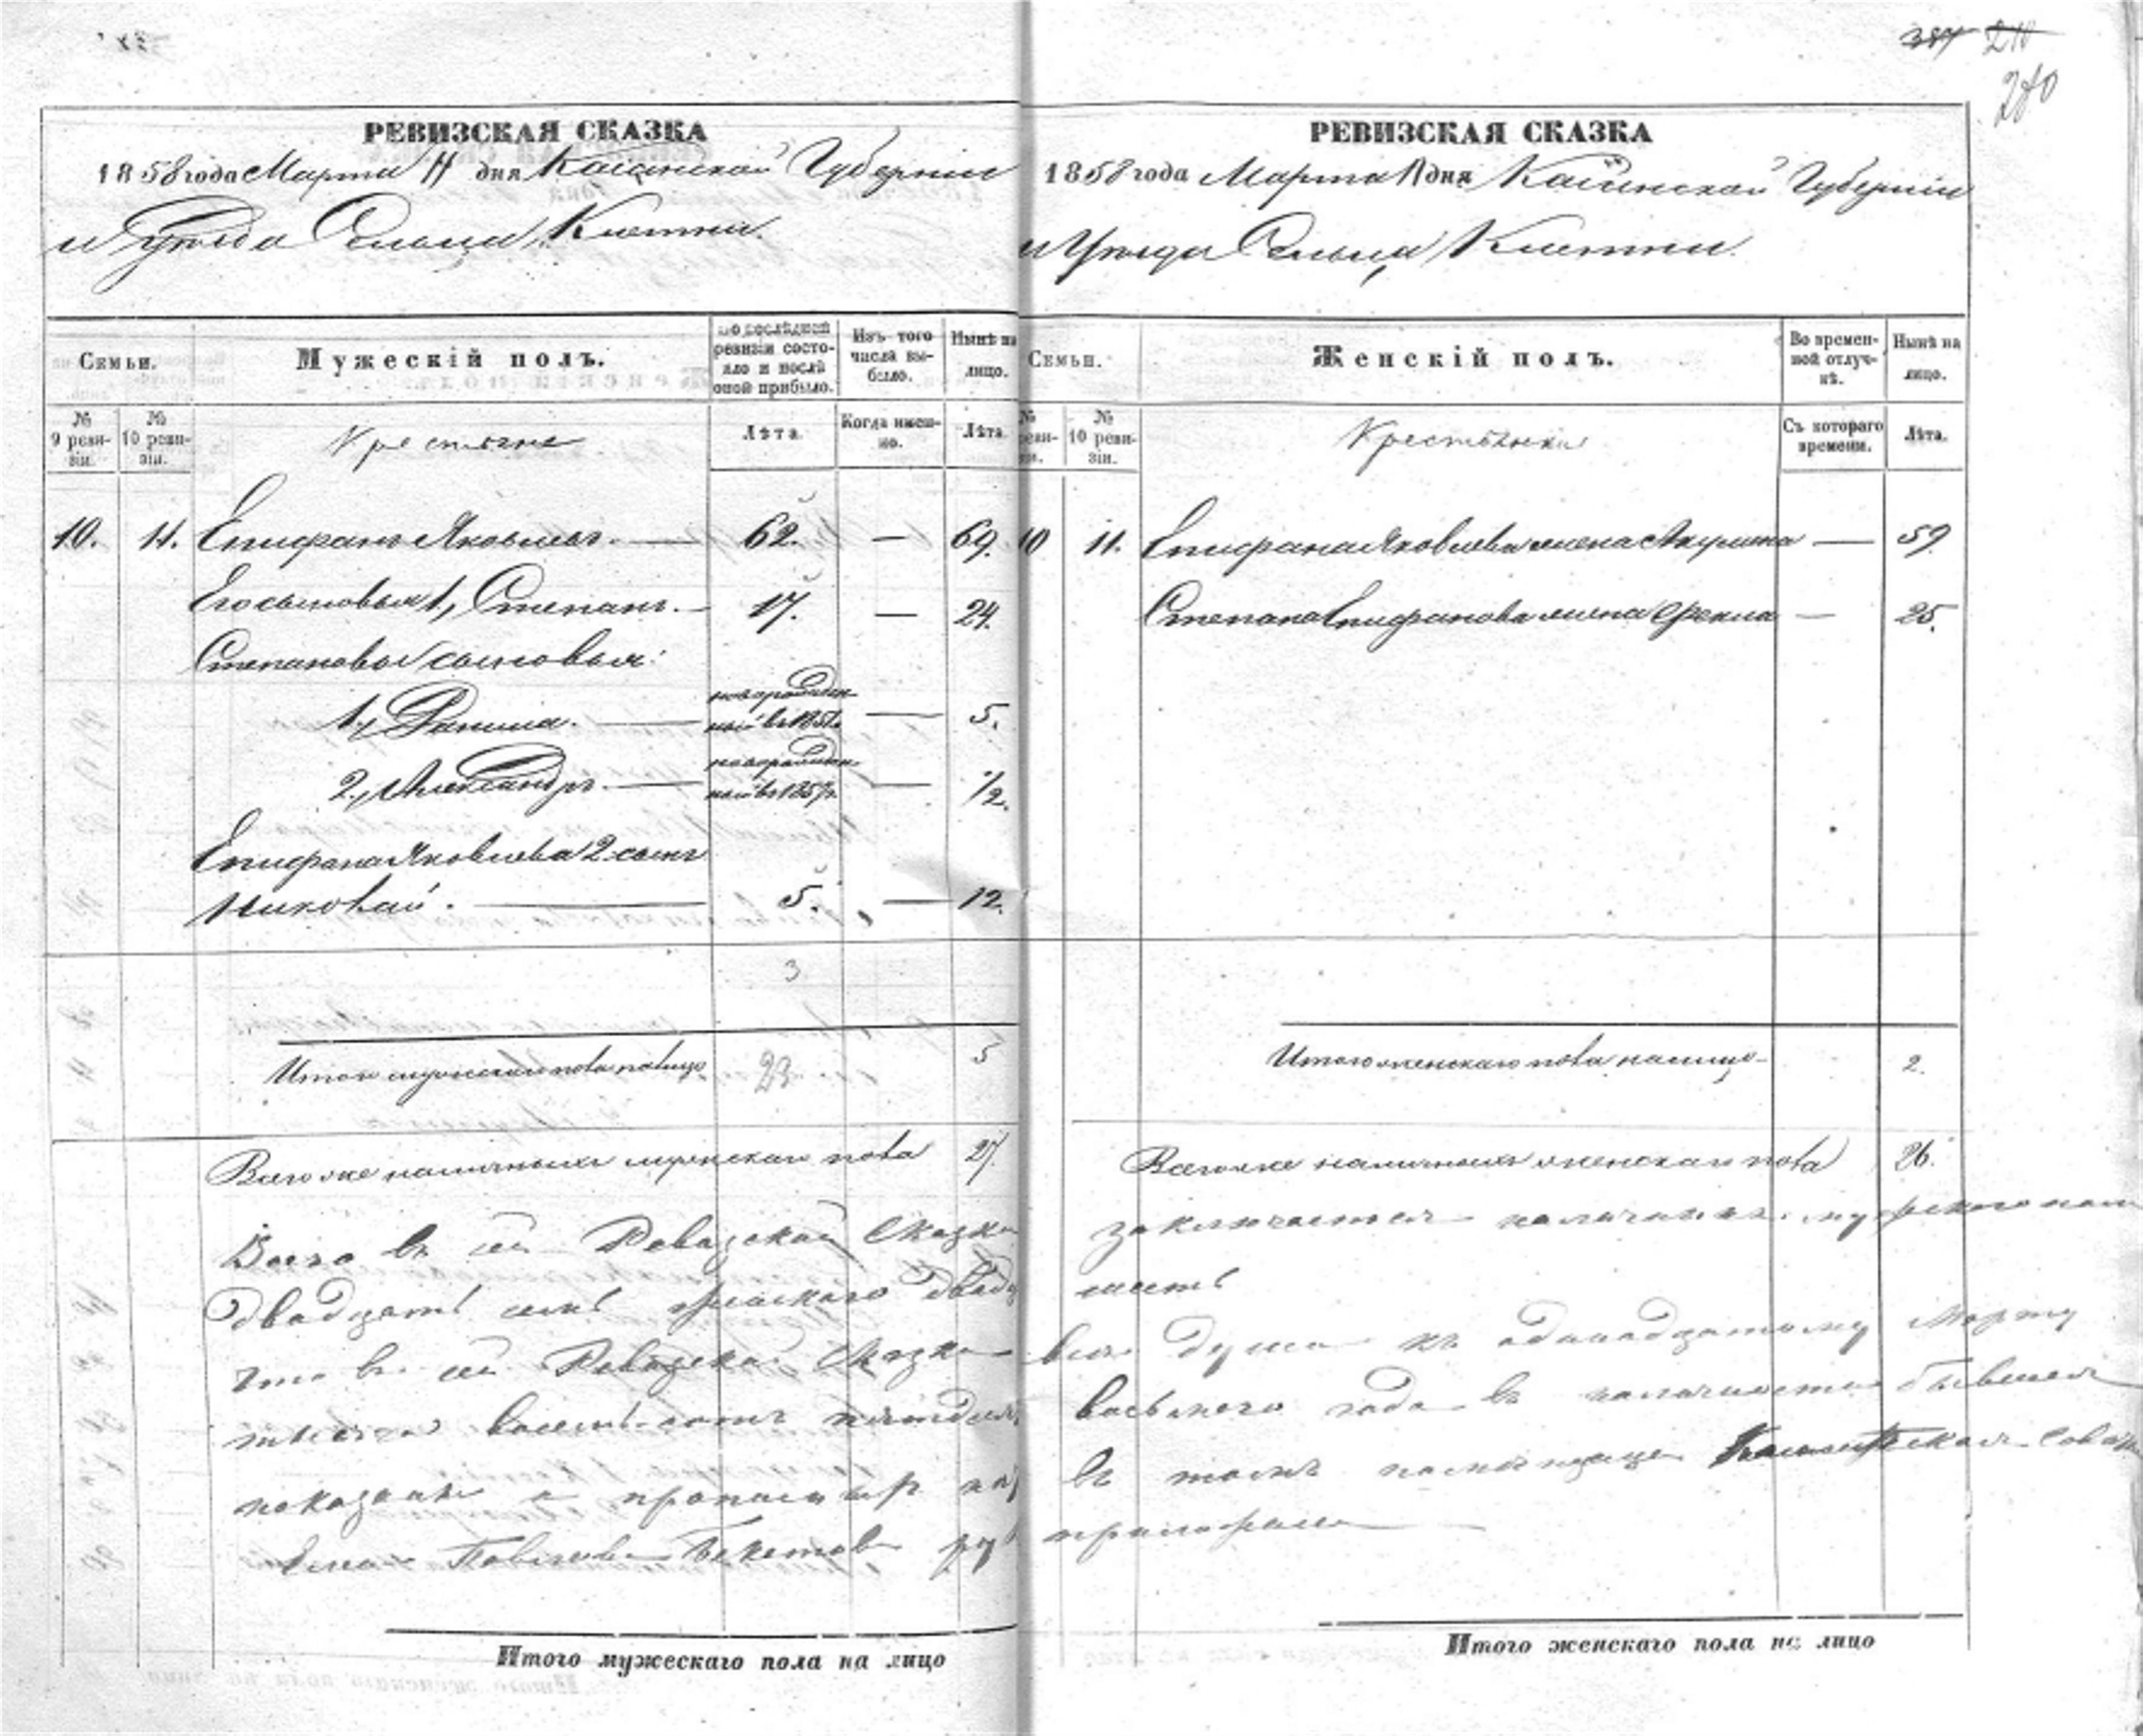 387 210
280
РЕВИЗСКАЯ СКАЗКА
1858 года Марта 11 дня Казанской Губернии
и Уѣзда Сельца Клетни.
Семьи.
Мужескій полъ.
По послѣдней ревизіи состояло и послѣ оной прибыло.
Изъ того числа выбыло.
Нынѣ на лицо.
№ 9 ревизіи.
№ 10 ревизіи.
Крестьяне
Лѣта
Когда именно.
Лѣта
10. 11. Епифанъ Яковлевъ. — 62. — 69.
Его сыновья 1, Степанъ. — 17. — 24.
Степановы сыновья:
1, Данила. — новорожденный въ 185 — 5.
2, Александръ. — новорожденный въ 1857 г. — 1/2.
Епифана Яковлева 2 сынъ
Николай. — 5. — 12.
3
Итого мужескаго пола налицо 23 5
Всего же наличныхъ мужескаго пола 27.
Всего въ сей Ревизской Сказке
двадцать семь женскаго двад
что въ сей Ревизской Сказке
тысяча восемьсотъ пятдеся
показаны и прописныхъ
Павлова Бекетова ру
Итого мужескаго пола на лицо
РЕВИЗСКАЯ СКАЗКА
1858 года Марта 11 дня Казанской Губерніи
и Уѣзда Сельца Клетни.
Семьи.
Женскій полъ.
Во временной отлучкѣ.
Нынѣ на лицо.
№ реви- зіи.
№ 10 ревизіи.
Крестьянки
Съ котораго времени.
Лѣта.
10 11. Епифана Яковлева жена Акулина — 59.
Степана Епифанова жена Фекла — 25.
Итого женскаго пола налицо 2.
Всего же наличныхъ женскаго пола 26.
заключается наличныхъ мужескаго пола
шесть
все души къ одинадцатому Марту
восьмаго года въ наличности бывшея
въ томъ помещица
приложила
Итого женскаго пола на лицо